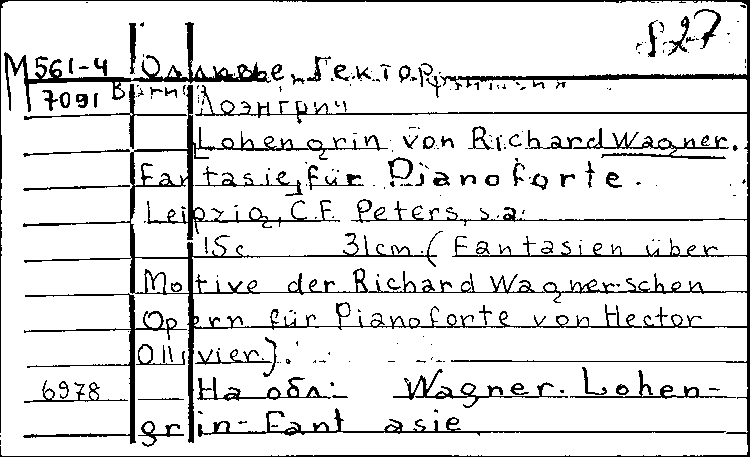 827
М 561-4 Олливье, Гектор
7091
Лоэнгрин
Lohengrin von Richard Wagner.
Fantasie, für Pianoforte.
Leipzig, C.F. Peters, s.a.
15c 31cm. (Fantasien über
Motive der Richard Wagner-schen
Opern für Pianoforte von Hector
Ollivier).
6978 На обл: Wagner. Lohen-
grin-Fantasie